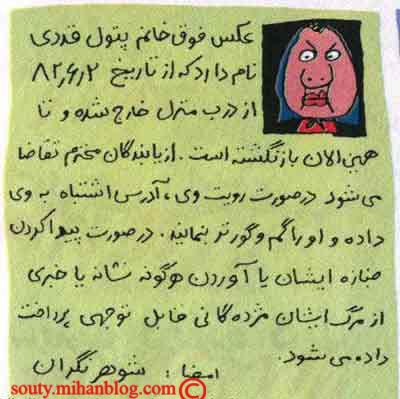 عکس فوق خانم پتول قندی
نام دارد که از تاریخ ۸۲٫۶٫۲
از درب منزل خارج شده و تا
همین الان بازنگشته است. از یابندگان محترم تقاضا
می شود درصورت رویت وی، آدرس اشتباه به وی
داده و او را گم و گورتر بنمایند. درصورت پیدا کردن
جنازه ایشان یا آوردن هرگونه نشانه یا خبری
از مرگ ایشان مژده گانی قابل توجهی پرداخت
داده می شود.
امضا: شوهر نگران
souty.mihanblog.com ©